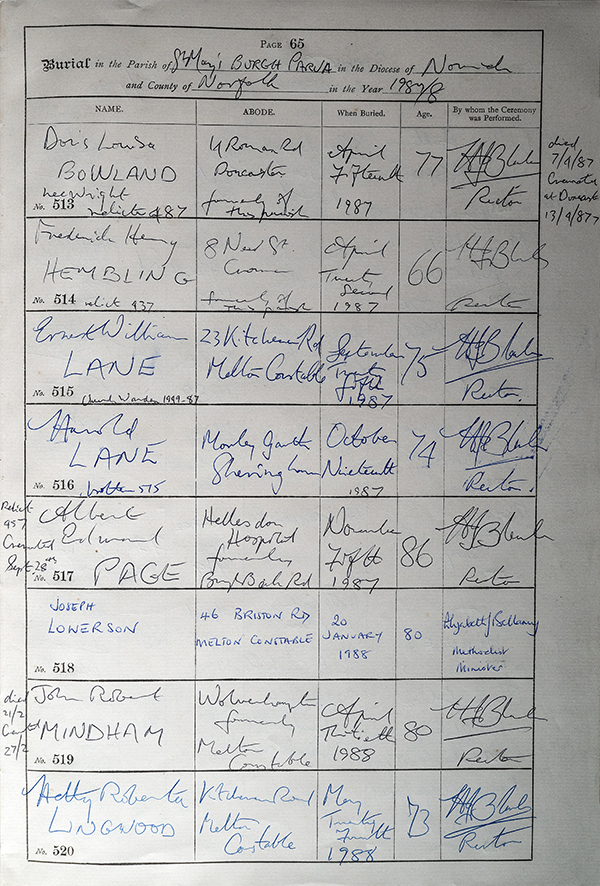 PAGE 65
Burial in the Parish of St Mary's BURGH PARVA in the Diocese of Norwich
and County of Norfolk in the Year 1987/8
NAME. ABODE. When Buried. Age. By whom the Ceremony was Performed.
Doris Louisa
BOWLAND
relict 487
No. 513
4 Roman Rd
Doncaster
formerly of
this parish
April
Fifteenth
1987
77
Rector
died
7/4/87
Cremated
at Doncaster
13/4/87
Frederick Henry
HEMBLING
No. 514 relict 437
8 New St.
Cromer
formerly of
this parish
April
Twenty
Second
1987
66
Rector
Ernest William
LANE
No. 515 Church Warden 1949-87
23 Kitchener Rd
Melton Constable
September
Twenty
Fifth
1987
75
Rector.
Harold
LANE
No. 516 brother 515
Morley Garth
Sheringham
October
Nineteenth
1987
74
Rector.
Relict
Cremated
Sept 28th
Albert
Edward
No. 517 PAGE
Hellesdon
Hospital
formerly
November
Fifth
1987
86
Rector
JOSEPH
LOWERSON
No. 518
46 BRISTON RD
MELTON CONSTABLE
20
JANUARY
1988
80
Elizabeth J Bellamy
Methodist
Minister
died
21/2
27/2
John Robert
MINDHAM
No. 519
Wolverhampton
formerly
Melton
Constable
April
Thirtieth
1988
80
Rector
Hetty Roberta
LINGWOOD
No. 520
Kitchener Road
Melton
Constable
May
Twenty
Fourth
1988
73
Rector